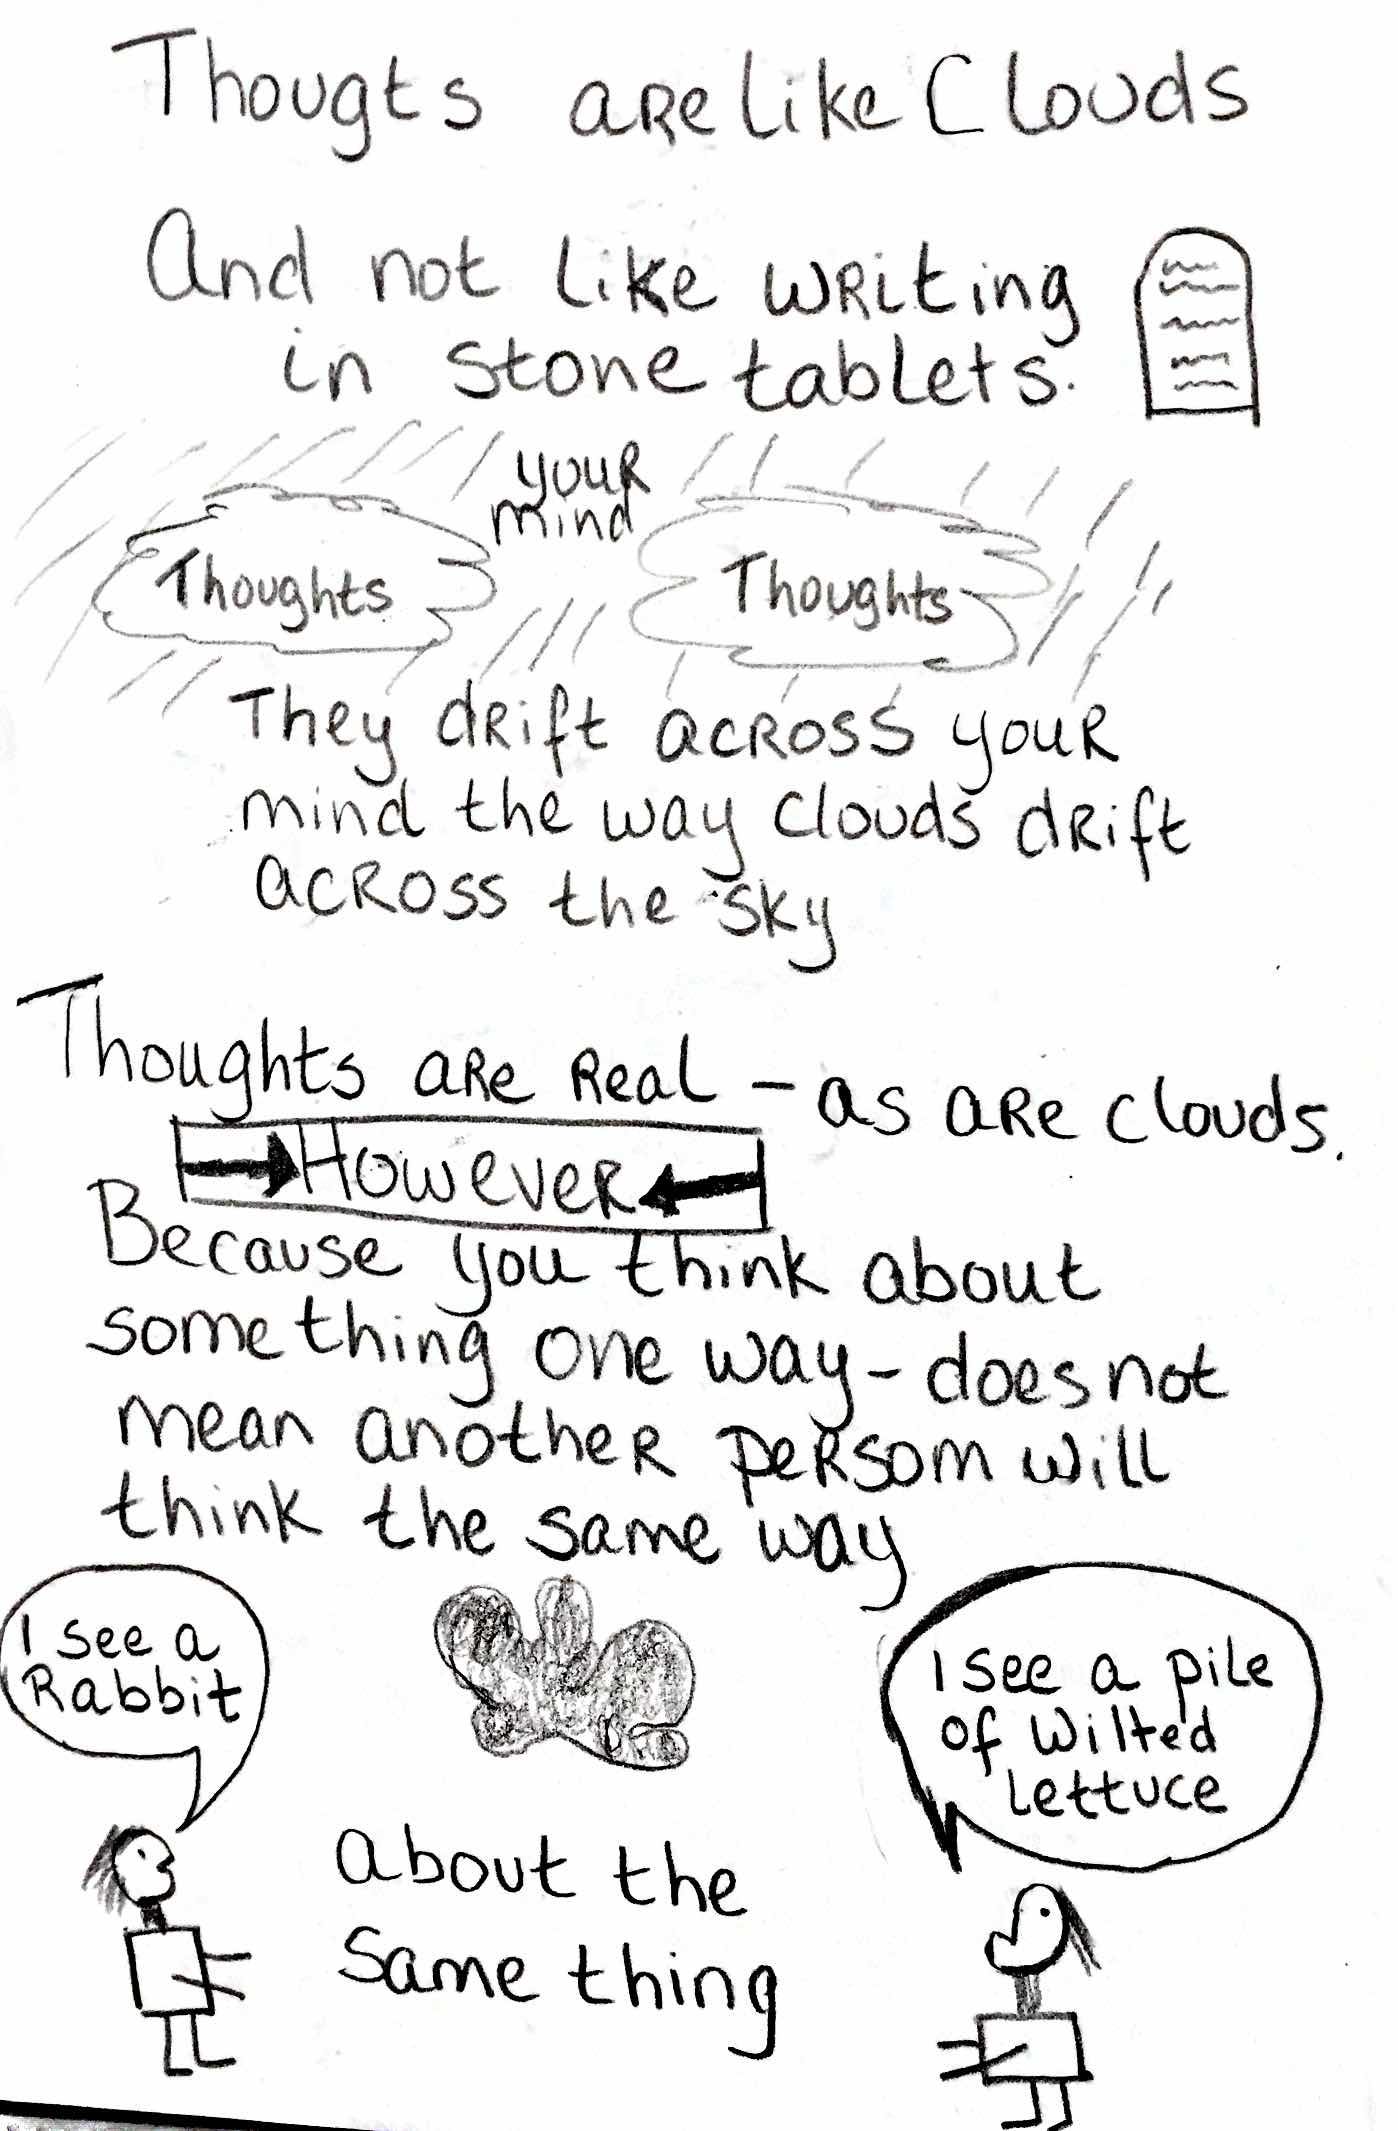 Thougts are like Clouds
And not like writing
in stone tablets.
your
mind
Thoughts
Thoughts
They drift across your
mind the way clouds drift
across the sky
Thoughts are real - as are clouds.
However
Because you think about
something one way - does not
mean another persom will
think the same way
I see a
Rabbit
I see a pile
of wilted
lettuce
about the
same thing